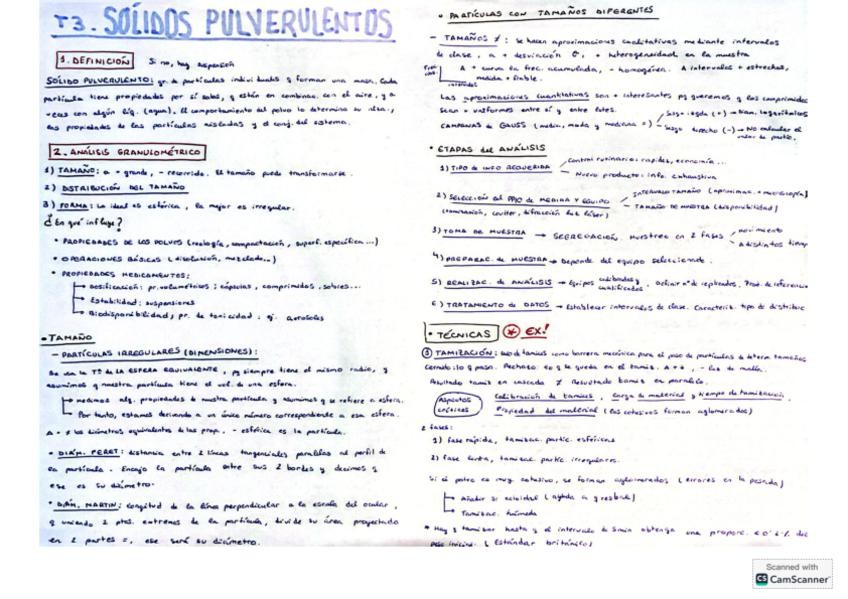 T3. SÓLIDOS PULVERULENTOS
1. DEFINICIÓN Si no, hay
SÓLIDO PULVERULENTO: gr. de partículas individuales q forman una masa. Cada
partícula tiene propiedades por sí solas, y están en combinac. con el aire, y a
veces con algún líq. (agua). El comportamiento del polvo lo determina su
las propiedades de las partículas aisladas y el conj. del sistema.
2. ANÁLISIS GRANULOMÉTRICO
1) TAMAÑO: a + grande, - recorrido. El tamaño puede transformarse.
2) DISTRIBUCIÓN DEL TAMAÑO
3) FORMA: La ideal es esférica, la mayor es irregular.
¿En qué influye?
• PROPIEDADES DE LOS POLVOS (reología, compactación, superf. específica...)
• OPERACIONES BÁSICAS (disolución, mezclado...)
• PROPIEDADES MEDICAMENTOS:
Dosificación: pr. volumétricos; cápsulas, comprimidos, sobres...
Estabilidad: suspensiones
Biodisponibilidad, pr. de toxicidad: ej. aerosoles
• TAMAÑO
— PARTÍCULAS IRREGULARES (DIMENSIONES):
Se usa la Tª DE LA ESFERA EQUIVALENTE, pq siempre tiene el mismo radio, y
asumimos q nuestra partícula tiene el vol. de una esfera.
medimos alg. propiedades de nuestra partícula y asumimos q se refiere a esfera.
Por tanto, estamos derivando a un único número correspondiente a esa esfera.
A + ≠ los diámetros equivalentes de las prop. - esférica es la partícula.
• DIÁM. FERET: distancia entre 2 líneas tangenciales paralelas al perfil de
la partícula. Encajo la partícula entre sus 2 bordes y decimos q
ese es su diámetro.
• DIÁM. MARTIN: longitud de la línea perpendicular a la escala del ocular,
q uniendo 2 ptos. extremos de la partícula, divide su área proyectada
en 2 partes =, ese será su diámetro.
• PARTÍCULAS CON TAMAÑOS DIFERENTES
— TAMAÑOS ≠: se hacen aproximaciones cualitativas mediante intervalos
de clase, a + desviación σ, + heterogeneidad en la muestra
A + curva la frec. acumulada, - homogénea. A intervalos + estrechos,
medida + fiable.
Las aproximaciones cuantitativas son + interesantes pq queremos q los comprimidos
sean + uniformes entre sí y entre lotes.
CAMPANAS de GAUSS (media, moda y mediana =)
Sesgo derecho (-) → No calcular el
• ETAPAS del ANÁLISIS
1) TIPO de INFO REQUERIDA
Control rutinario: rapidez, economía...
Nuevo producto: info. exhaustiva
2) SELECCIÓN del PPIO de MEDIDA Y EQUIPO
INTERVALO TAMAÑO
TAMAÑO DE MUESTRA (disponibilidad)
3) TOMA DE MUESTRA → SEGREGACIÓN. Muestreo en 2 fases
movimiento
4) PREPARAC. de MUESTRA → Depende del equipo seleccionado.
5) REALIZAC. de ANÁLISIS → Equipos calibrados y cualificados. Definir nº de replicados. Prod. de referencia
6) TRATAMIENTO de DATOS → Establecer intervalos de clase. Caracteriz. tipo de distribuc
• TÉCNICAS * EX!
TAMIZACIÓN: uso de tamices como barrera mecánica para el paso de partículas de determ. tamaños
Cernido: lo q pasa. Rechazo: lo q se queda en el tamiz. A + , - luz de malla.
Resultado tamiz en cascada ≠ Resultado tamiz en paralelo.
Aspectos críticos
Calibración de tamices, carga de material y tiempo de tamización.
Propiedad del material (los cohesivos forman aglomerados)
2 fases:
1) fase rápida, tamizac. partíc. esféricas
2) fase lenta, tamizac. partíc. irregulares.
Si el polvo es muy cohesivo, se forman aglomerados (errores en la pesada)
Añadir
Tamizac. húmeda
* Hay q tamizar hasta q el intervalo de 5 min obtenga una proporc.
peso inicial. (Estándar británico)
Scanned with
CS CamScanner